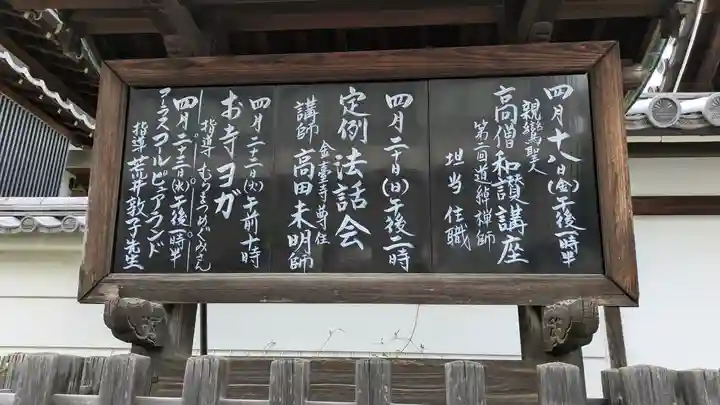 四月十八日(金)午後一時半
親鸞聖人
高僧和讃講座
第二回道綽禅師
担当 住職
四月二十日(日)午後二時
定例法話会
金臺寺専住
講師 高田未明師
四月二十二日(火)午前十時
お寺ヨガ
指導 むらまつめぐみさん
四月二十三日(水)午後一時半
アーラスコルピアランド
指導 荒井敦子先生